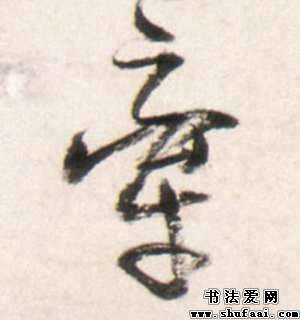 牽
书法爱网
www.shufaai.com